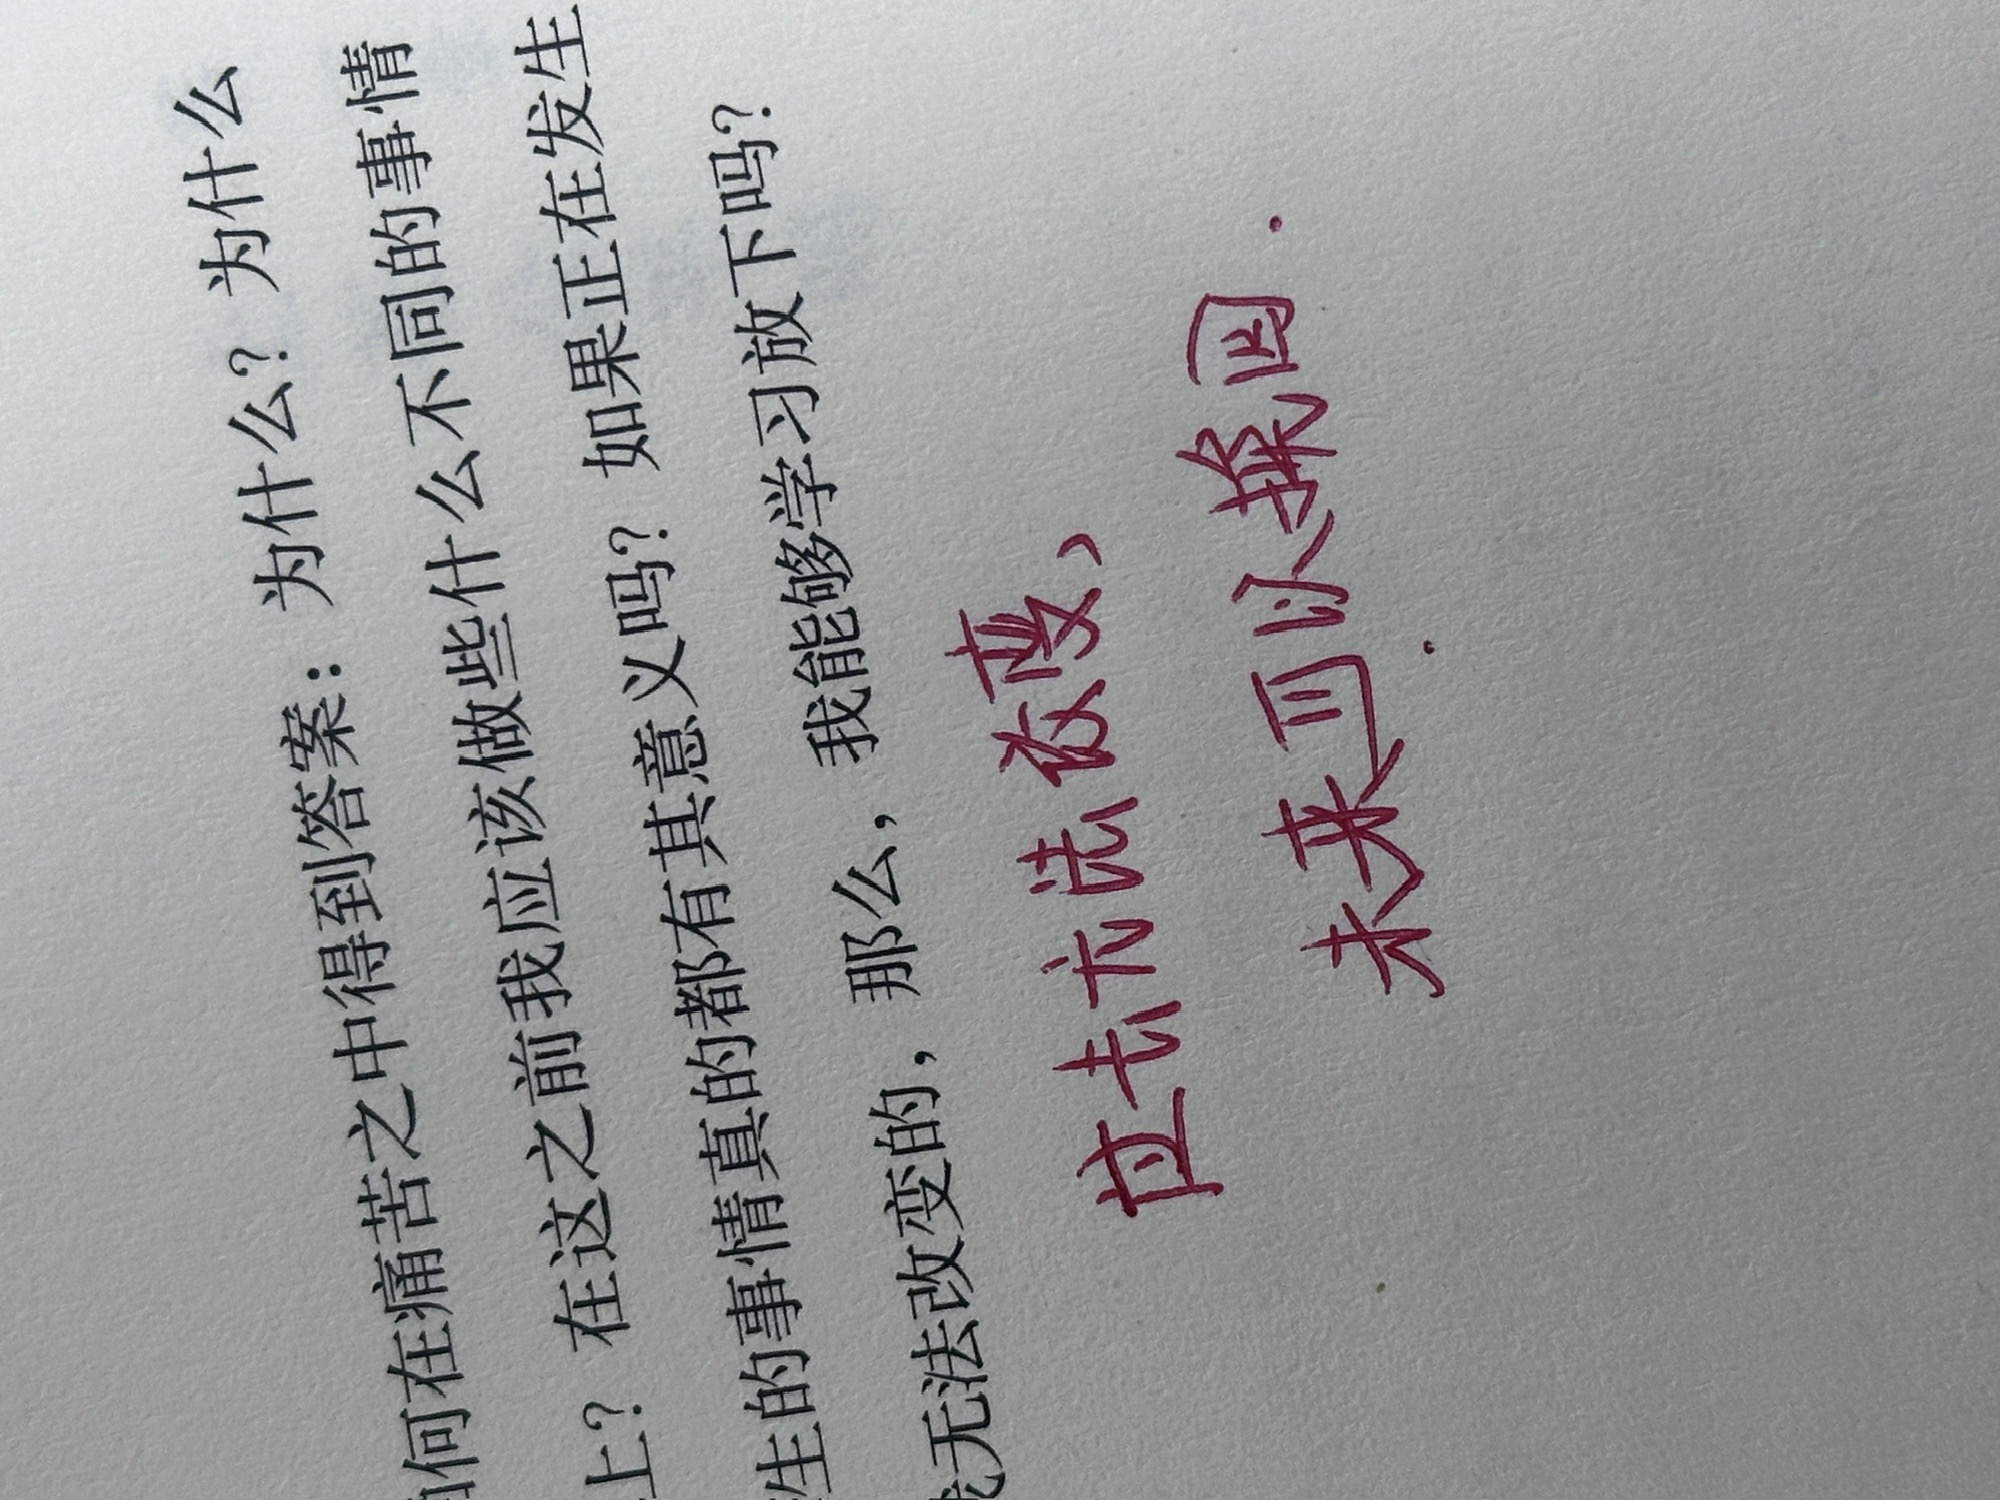 何在痛苦之中得到答案：为什么？为什么
上？在这之前我应该做些什么不同的事情
生的事情真的都有其意义吗？如果正在发生
我无法改变的，那么，我能够学习放下吗？
去无法改变，
未来可以